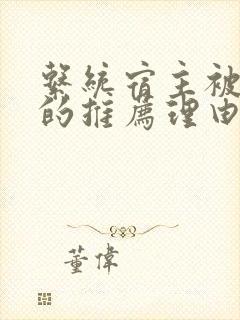 繫統宿主被
的推薦理由
董偉